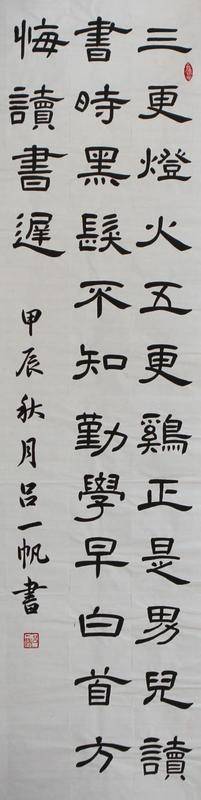 三更燈火五更鷄正是男兒讀
書時黑髮不知勤學早白首方
悔讀書遲
甲辰秋月吕一帆書